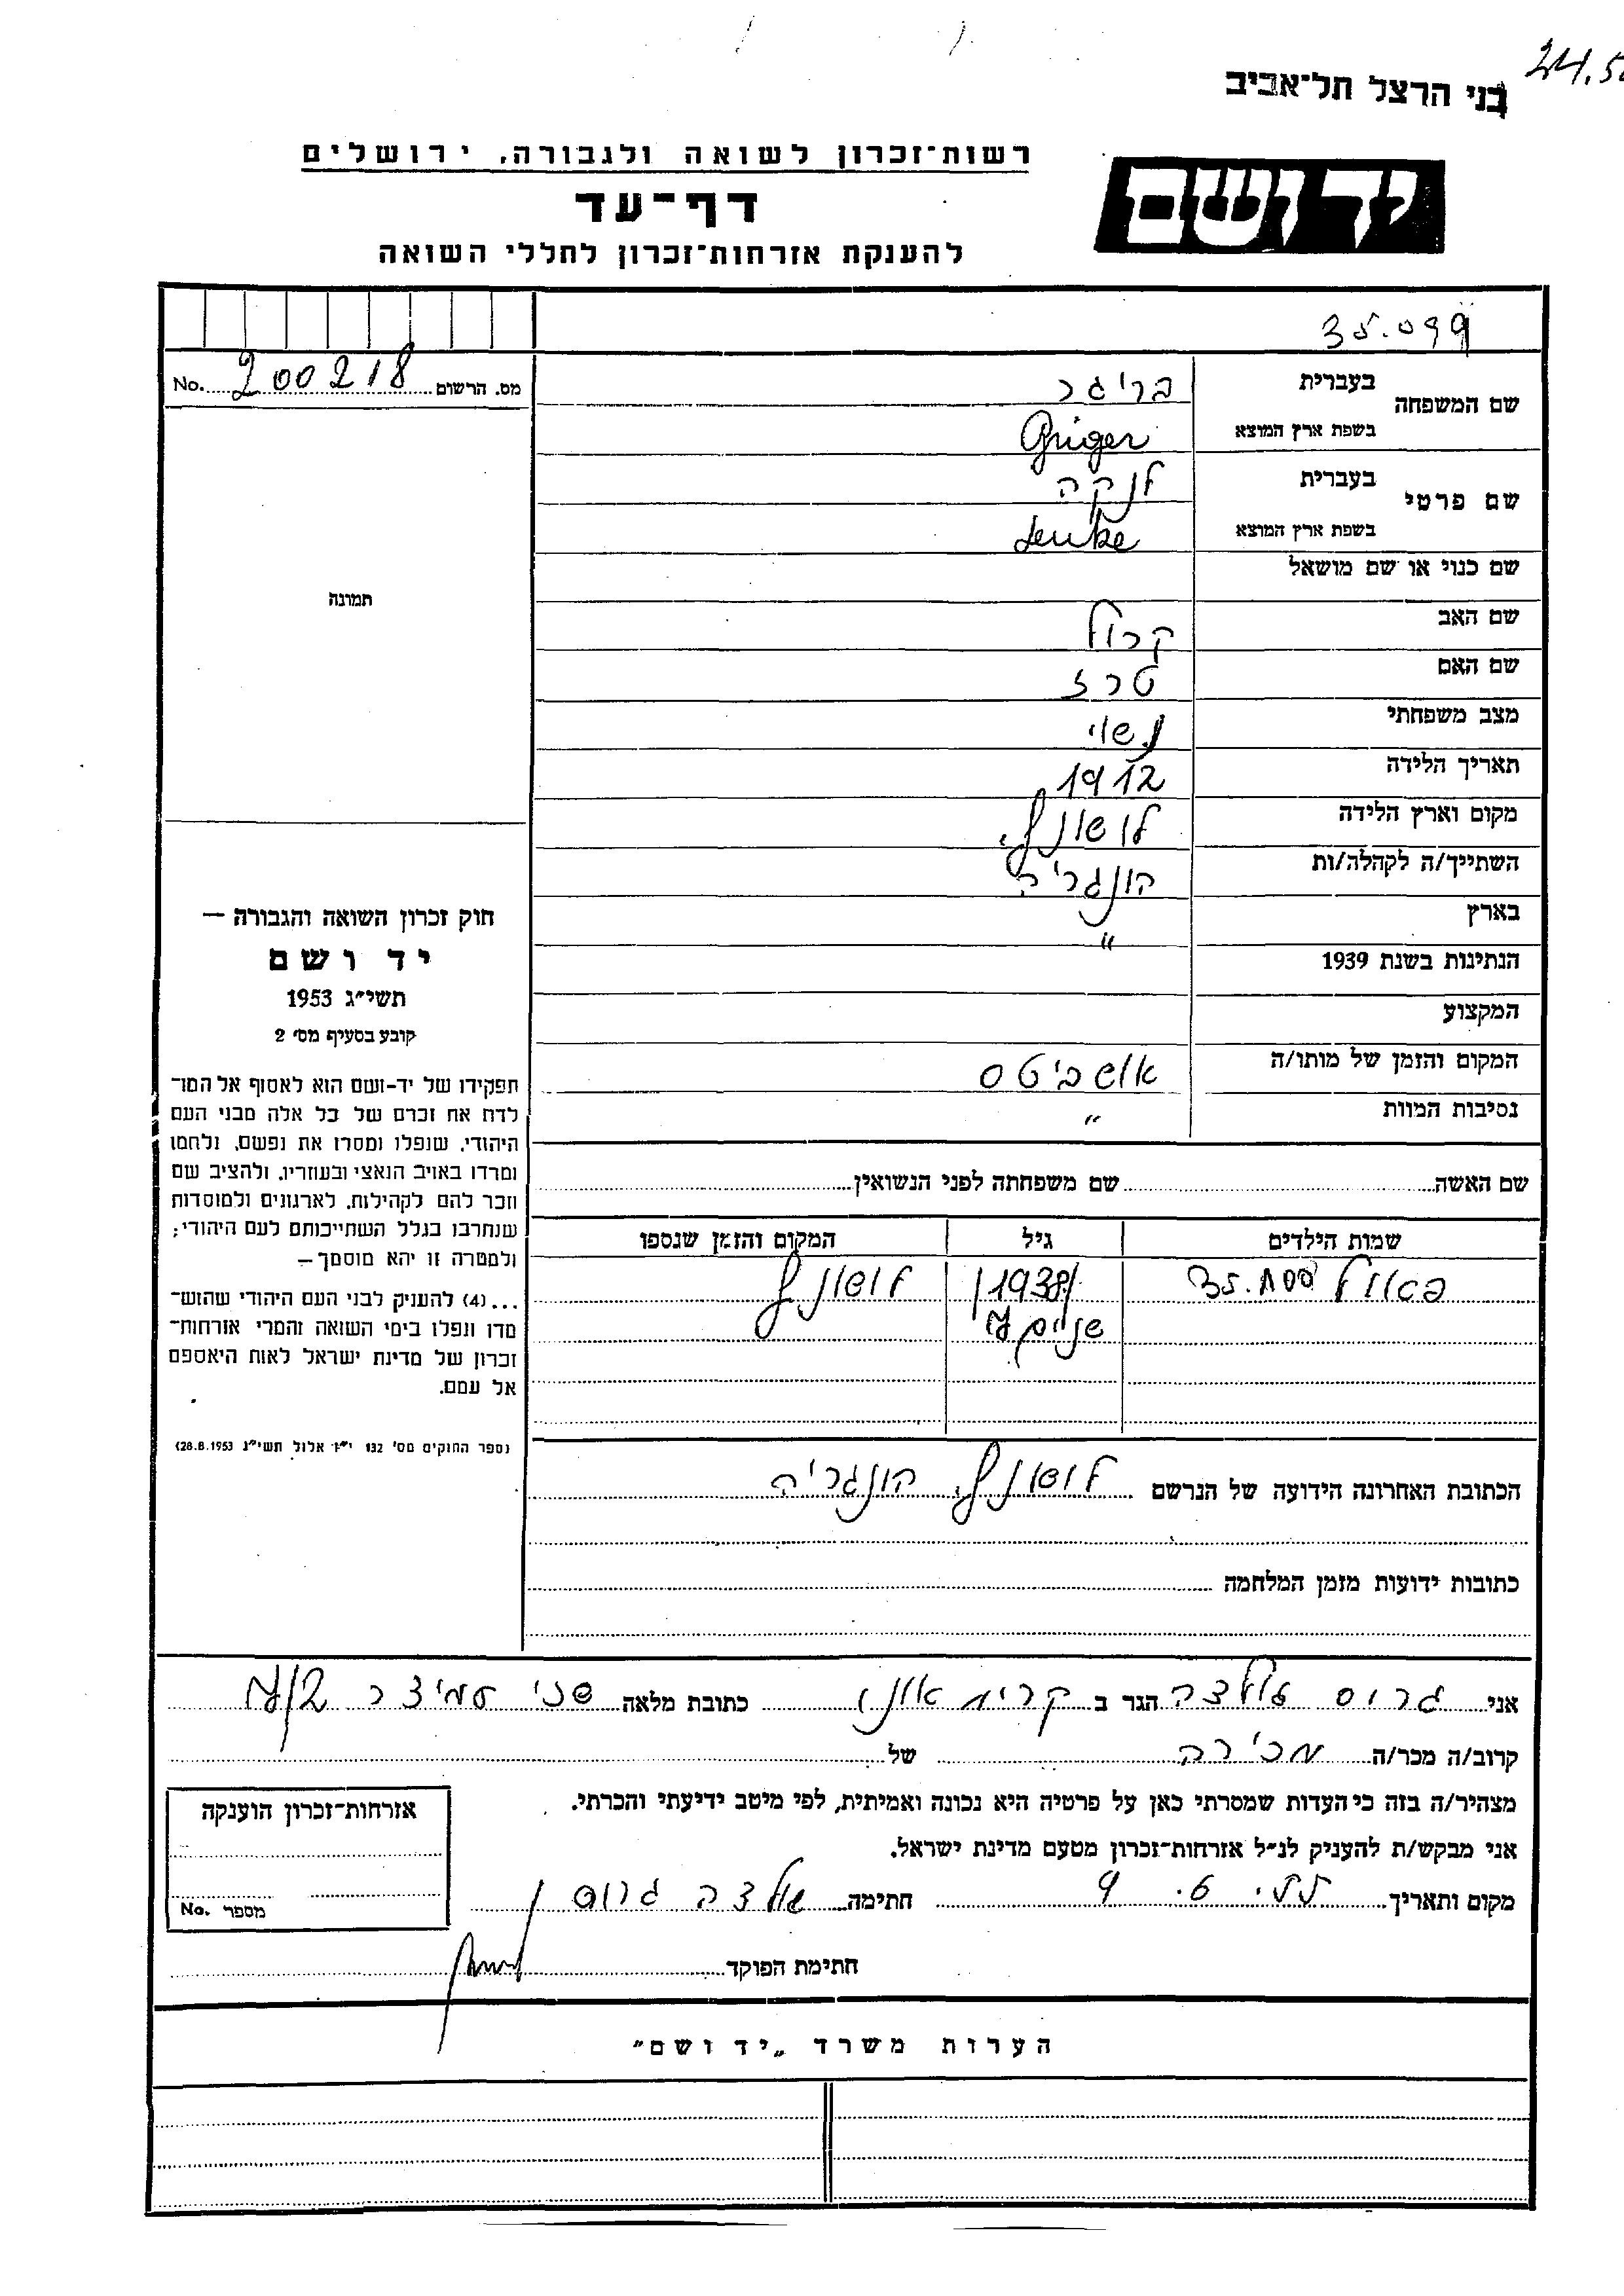 24.5
בני הרצל תל־אביב
רשות־זכרון לשואה ולגבורה, ירושלים
יד ושם
דף־עד
להענקת אזרחות־זכרון לחללי השואה
35.099
מס. הרשום 200218 No.
שם המשפחה
בעברית
בריגר
בשפת ארץ המוצא
שם פרטי
בעברית
לנקה
בשפת ארץ המוצא
Lenke
שם כנוי או שם מושאל
תמונה
שם האב
קרול
שם האם
טרז
מצב משפחתי
נשוי
תאריך הלידה
1912
מקום וארץ הלידה
לושונץ.
השתייך/ה לקהלה/ות
הונגריה
בארץ
"
הנתינות בשנת 1939
המקצוע
המקום והזמן של מותו/ה
אושביטס
נסיבות המוות
"
חוק זכרון השואה והגבורה —
יד ושם
תשי״ג 1953
קובע בסעיף מס׳ 2
תפקידו של יד-ושם הוא לאסוף אל המו־
לדת את זכרם של כל אלה מבני העם
היהודי, שנפלו ומסרו את נפשם, נלחמו
ומרדו באויב הנאצי ובעוזריו, ולהציב שם
וזכר להם לקהילות, לארגונים ולמוסדות
שנחרבו בגלל השתייכותם לעם היהודי;
ולמטרה זו יהא מוסמך —
...(4) להעניק לבני העם היהודי שהוש־
מדו ונפלו בימי השואה והמרי אזרחות־
זכרון של מדינת ישראל לאות היאספם
אל עמם.
(ספר החוקים מס׳ 132 י״ז אלול תשי״ג 28.8.1953)
שם האשה שם משפחתה לפני הנשואין
שמות הילדים גיל המקום והזמן שנספו
פאול 1938 לושונץ
הכתובת האחרונה הידועה של הנרשם לושונץ, הונגריה
כתובות ידועות מזמן המלחמה
אני גרוס הגר ב קרית אונו כתובת מלאה
קרוב/ה מכר/ה מכירה של
מצהיר/ה בזה כי העדות שמסרתי כאן על פרטיה היא נכונה ואמיתית, לפי מיטב ידיעתי והכרתי.
אני מבקש/ת להעניק לנ״ל אזרחות־זכרון מטעם מדינת ישראל.
מקום ותאריך חתימה גרוס
חתימת הפוקד
אזרחות־זכרון הוענקה
מספר No.
הערות משרד „יד ושם״